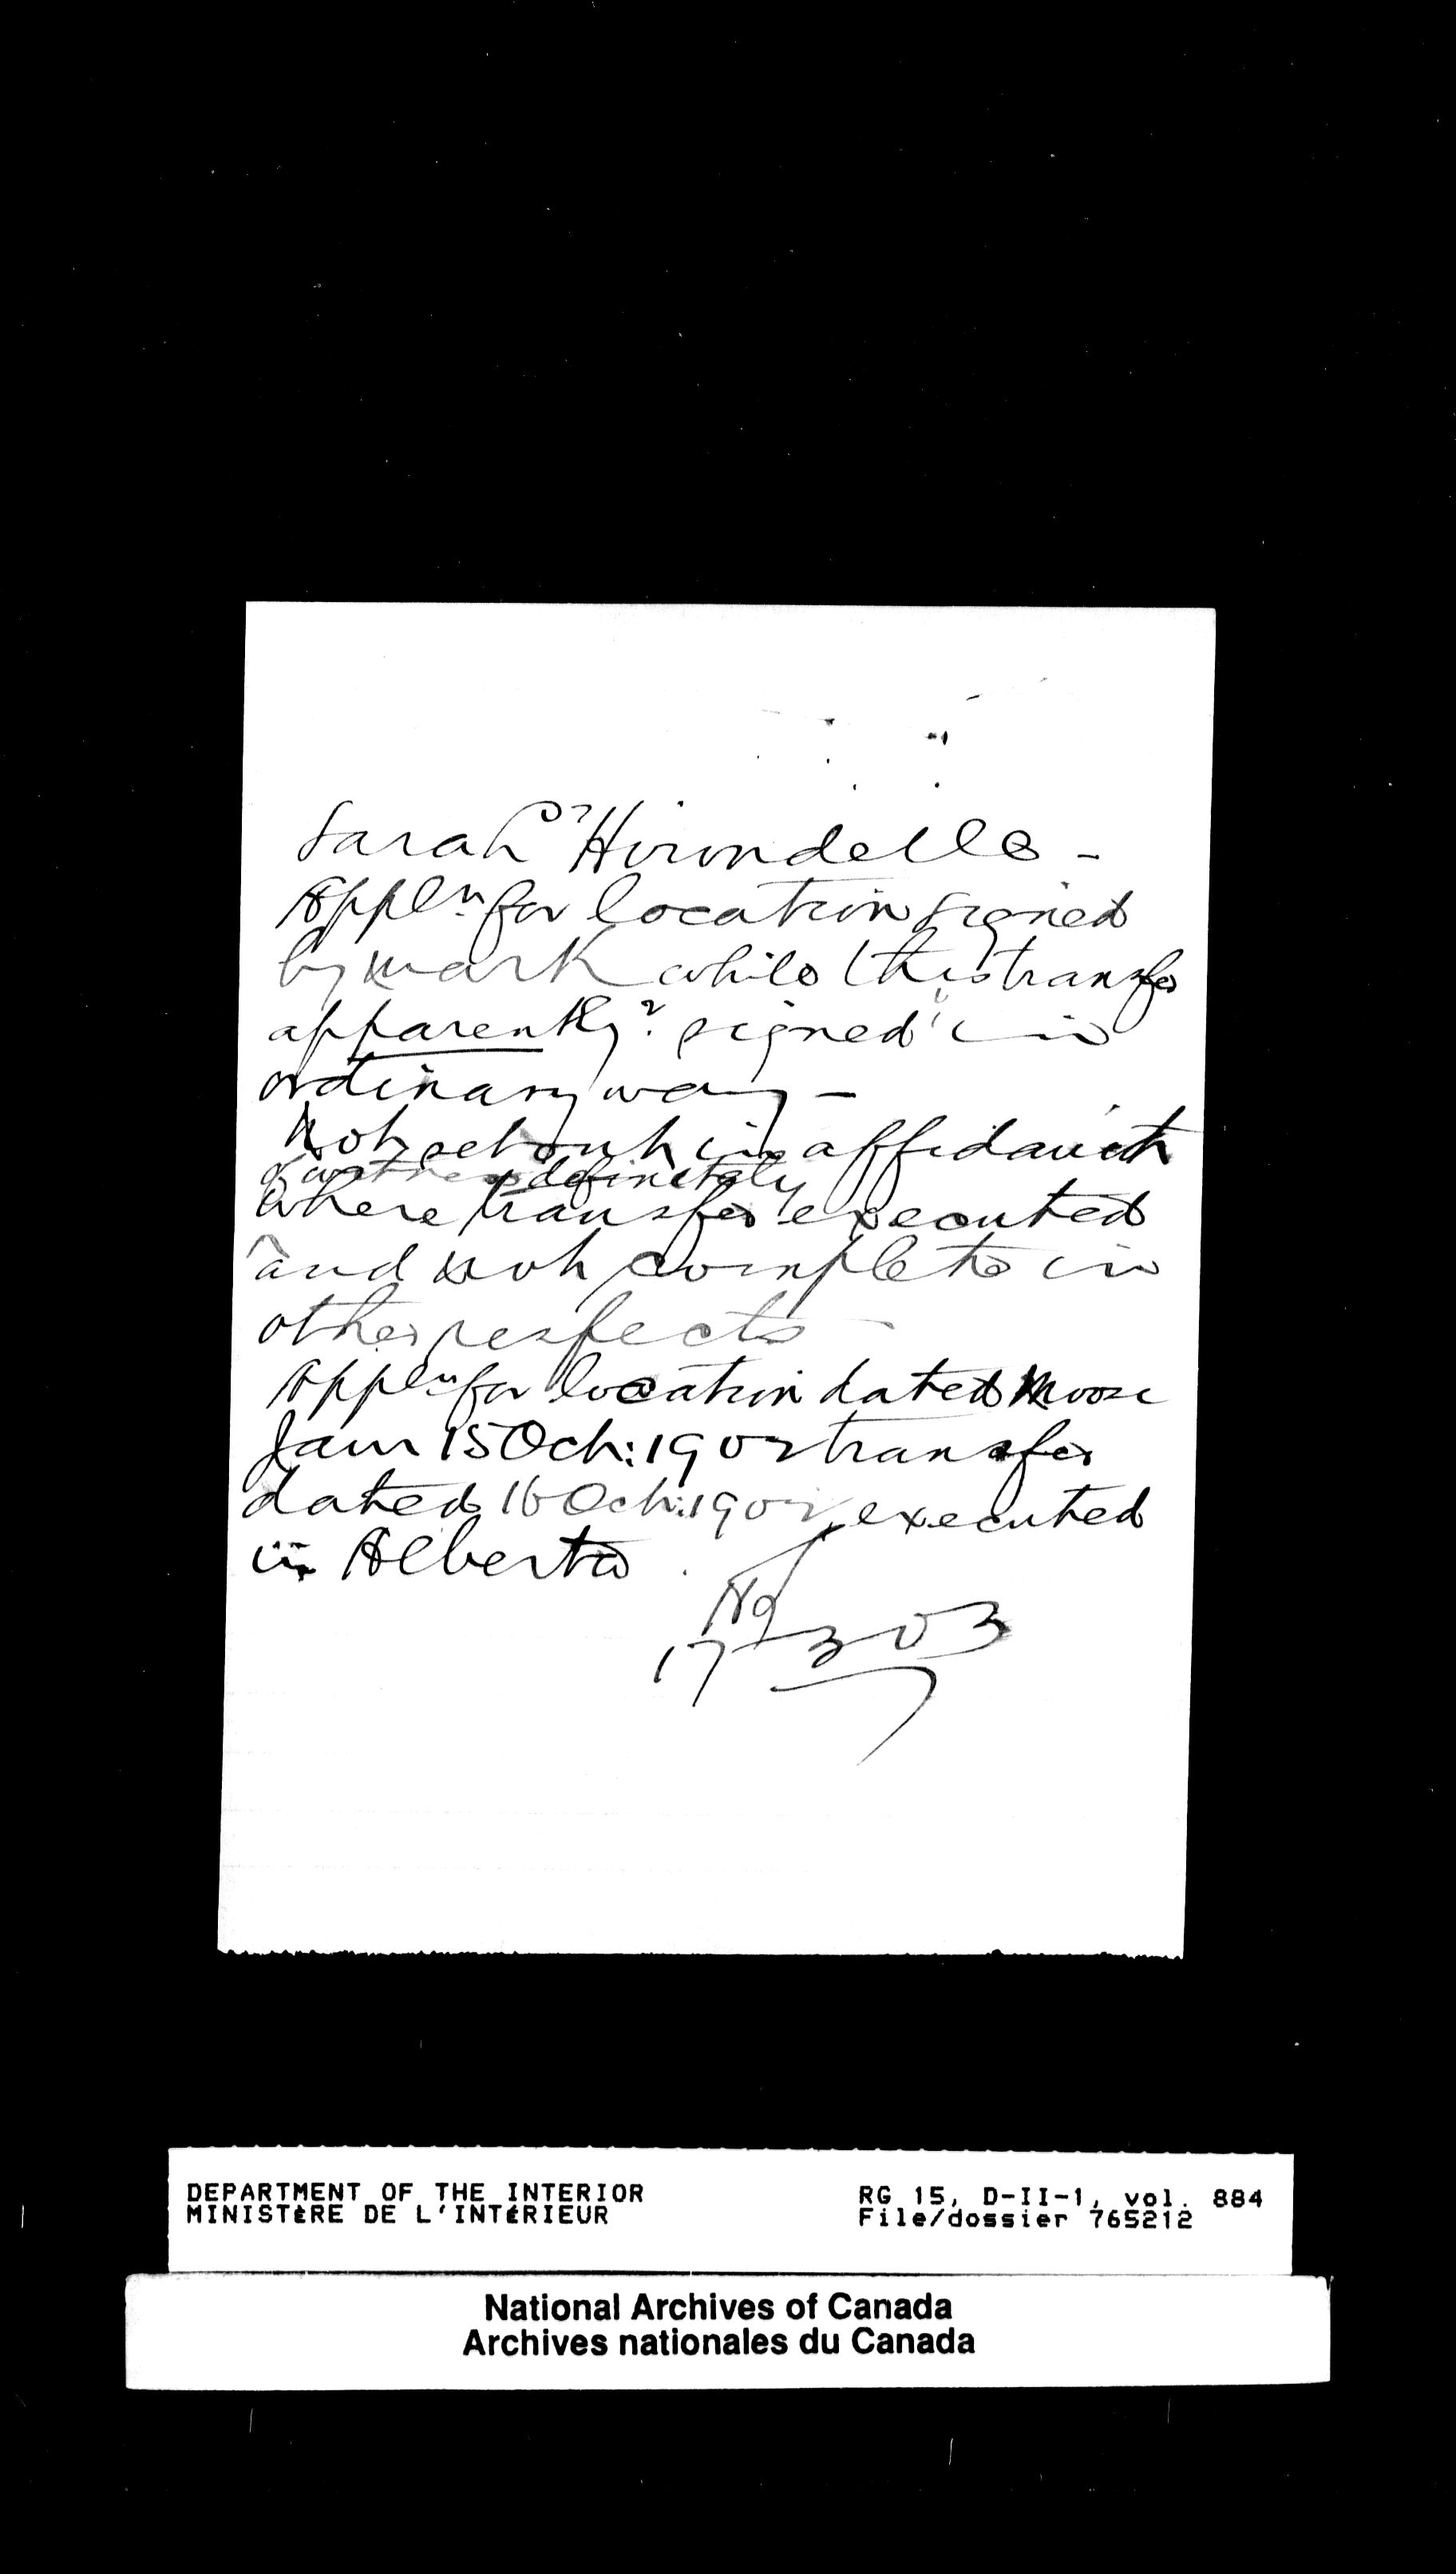 Sarah L'Hirondelle -
Appln. for location signed
by mark while this transfer
apparently? signed in
ordinary way -
Not set out in affidavit
of witness definitely
where transfer executed
and not complete in
other respects -
Appln. for location dated Moose
Jaw 15 Oct: 1902 transfer
dated 16 Oct: 1902, executed
in Alberta.
17 3 03
DEPARTMENT OF THE INTERIOR
MINISTÈRE DE L'INTÉRIEUR
RG 15, D-II-1, vol. 884
File/dossier 765212
National Archives of Canada
Archives nationales du Canada